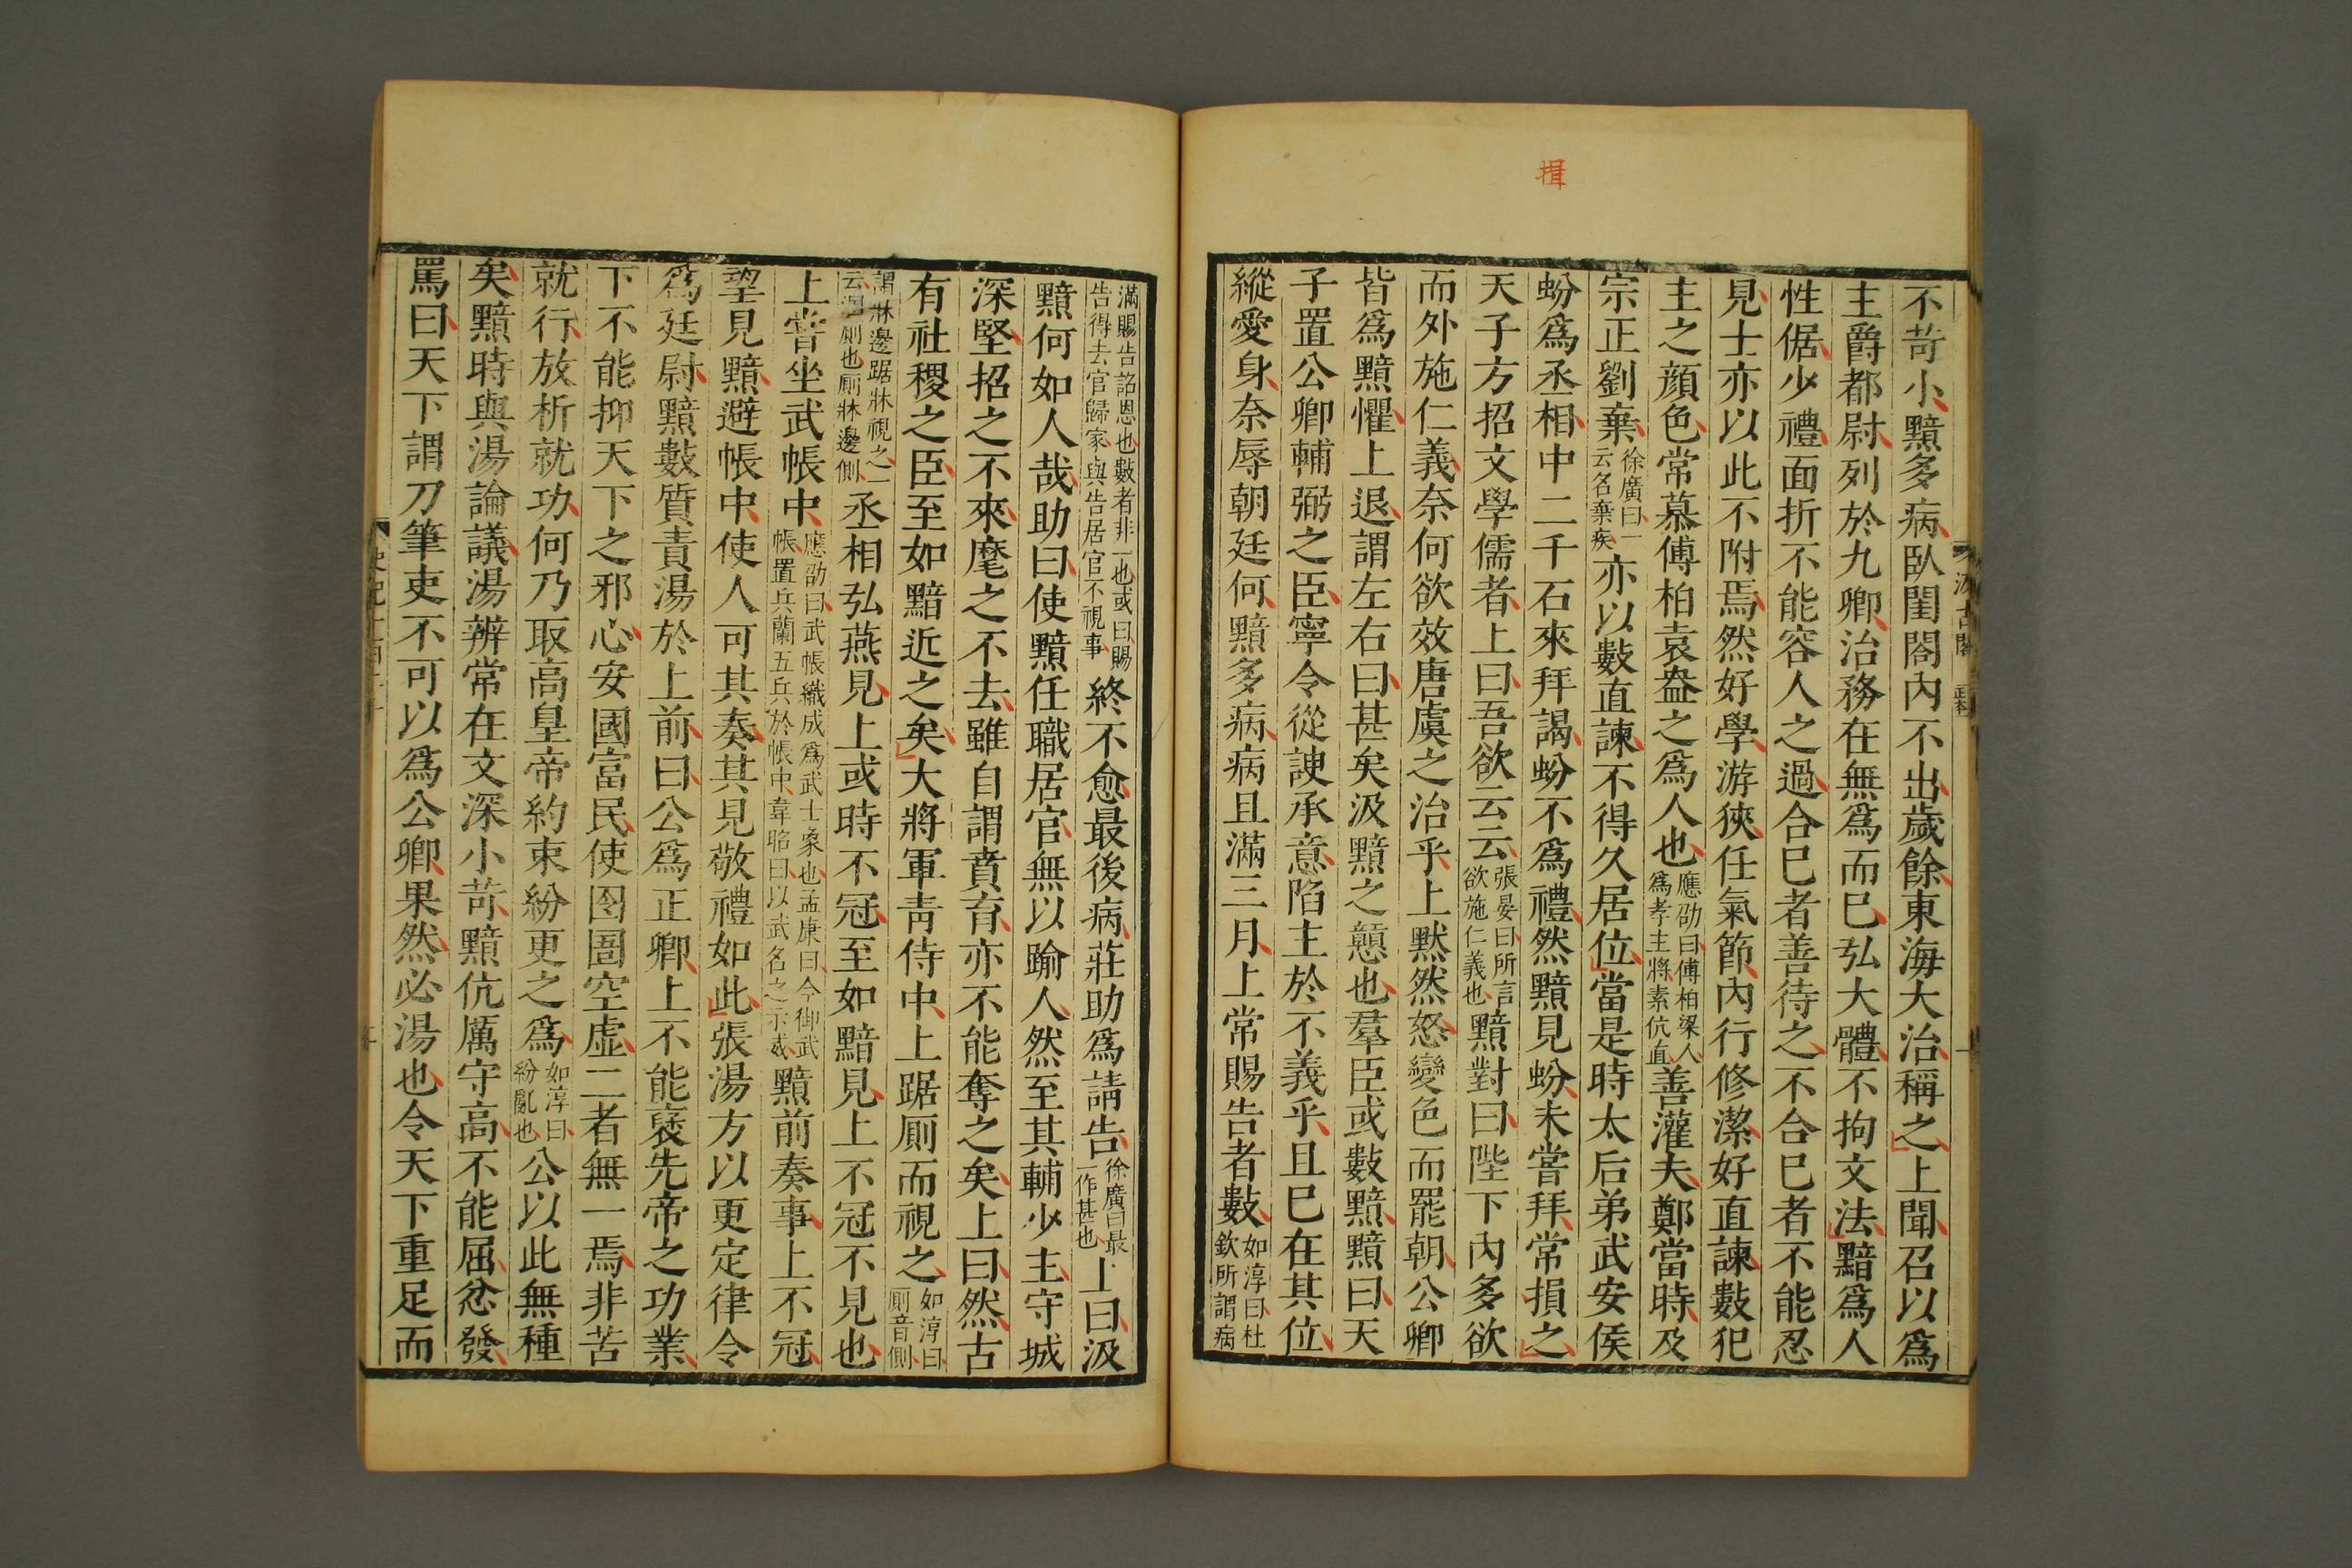 揖
不苛小黯多病臥閨閤內不出歲餘東海大治稱之上聞召以爲
主爵都尉列於九卿治務在無爲而已弘大體不拘文法黯爲人
性倨少禮面折不能容人之過合已者善待之不合已者不能忍
見士亦以此不附焉然好學游狹任氣節內行修潔好直諫數犯
主之顔色常慕傅柏袁盎之爲人也應劭曰傅柏梁人爲孝主將素伉直善灌夫鄭當時及
宗正劉棄徐廣曰一云名棄疾亦以數直諫不得久居位當是時太后弟武安侯
蚡爲丞相中二千石來拜謁蚡不爲禮然黯見蚡未嘗拜常損之
天子方招文學儒者上曰吾欲云云張晏曰所言欲施仁義也黯對曰陛下內多欲
而外施仁義奈何欲效唐虞之治乎上默然怒變色而罷朝公卿
皆爲黯懼上退謂左右曰甚矣汲黯之戇也羣臣或數黯黯曰天
子置公卿輔弼之臣寧令從諛承意陷主於不義乎且已在其位
縱愛身奈辱朝廷何黯多病病且滿三月上常賜告者數如淳曰杜欽所謂病
滿賜告詔恩也數者非一也或曰賜告得去官歸家與告居官不視事終不愈最後病莊助爲請告徐廣曰最一作甚也上曰汲
黯何如人哉助曰使黯任職居官無以踰人然至其輔少主守城
深堅招之不來麾之不去雖自謂賁育亦不能奪之矣上曰然古
有社稷之臣至如黯近之矣大將軍青侍中上踞厠而視之如淳曰厠音側
謂牀邊踞牀視之一云溷厠也厠牀邊側丞相弘燕見上或時不冠至如黯見上不冠不見也
上嘗坐武帳中應劭曰武帳織成爲武士象也孟康曰今御武帳置兵蘭五兵於帳中韋昭曰以武名之示威黯前奏事上不冠
望見黯避帳中使人可其奏其見敬禮如此張湯方以更定律令
爲廷尉黯數質責湯於上前曰公爲正卿上不能襃先帝之功業
下不能抑天下之邪心安國富民使囹圄空虛二者無一焉非苦
就行放析就功何乃取高皇帝約束紛更之爲如淳曰紛亂也公以此無種
矣黯時與湯論議湯辨常在文深小苛黯伉厲守高不能屈忿發
罵曰天下謂刀筆吏不可以爲公卿果然必湯也令天下重足而